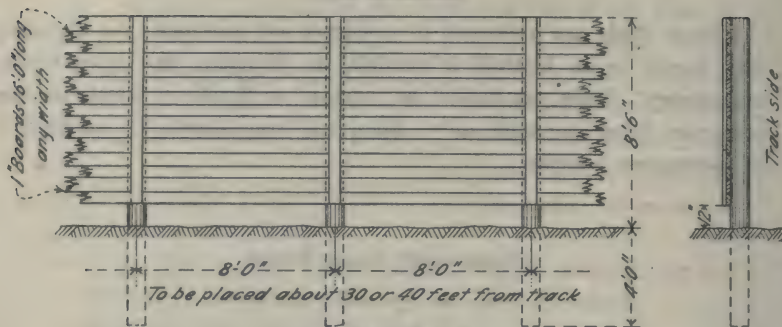 1" Boards 16'-0" long
any width
8'-6"
Track side
12"
8'-0"
8'-0"
4'-0"
To be placed about 30 or 40 feet from track